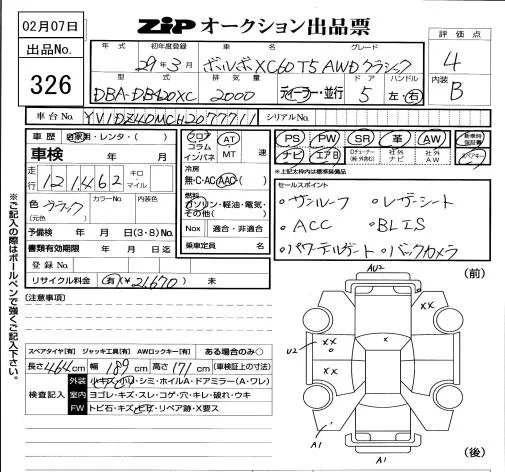 02月07日
ZIP オークション出品票
出品No.
326
年式 初年度登録 車名 グレード
29年3月 ボルボXC60 T5 AWDクラシック
型式 排気量 ドア ハンドル
DBA-DB420XC 2000 ディーラー・並行 5 左・右
評価点
4
内装
B
車台No. YV1DZ40MCH2077711 シリアルNo.
車歴 自家用・レンタ・( )
車検 年 月
走行 121,462 キロ マイル
色 ブラック カラーNo. 内装色
(元色)
予備検 年 月 日(3・8)No.
書類有効期限 年 月 日迄
登録No.
リサイクル料金 有(¥21,670) 未
フロア コラム インパネ
AT・MT 速
冷房
無・C・AC・AAC
燃料
ガソリン・軽油・電気・その他( )
Nox 適合・非適合
乗車定員 名
PS PW SR 革 AW
ナビ エアB
Dチューナー 社外ナビ 社外AW
新車時保証書
スペアキー
※上記太枠内は標準装備品
セールスポイント
・サンルーフ ・レザーシート
・ACC ・BLIS
・パワーテールゲート ・バックカメラ
※ご記入の際はボールペンで強くご記入下さい。
[注意事項]
スペアタイヤ[有] ジャッキ工具[有] AWロックキー[有] ある場合のみ○
長さ464cm 幅189cm 高さ171cm (車検証上の寸法)
検査記入
外装 小キズ・小U・シミ・ホイルA・ドアミラー(A・ワレ)
室内 ヨゴレ・キズ・スレ・コゲ・穴・キレ・破れ・ウキ
FW トビ石・キズ・ヒビ・リペア跡・X要ス
(前)
AU2
XX
XX
U2
X
XX
XX
A1
A1
(後)